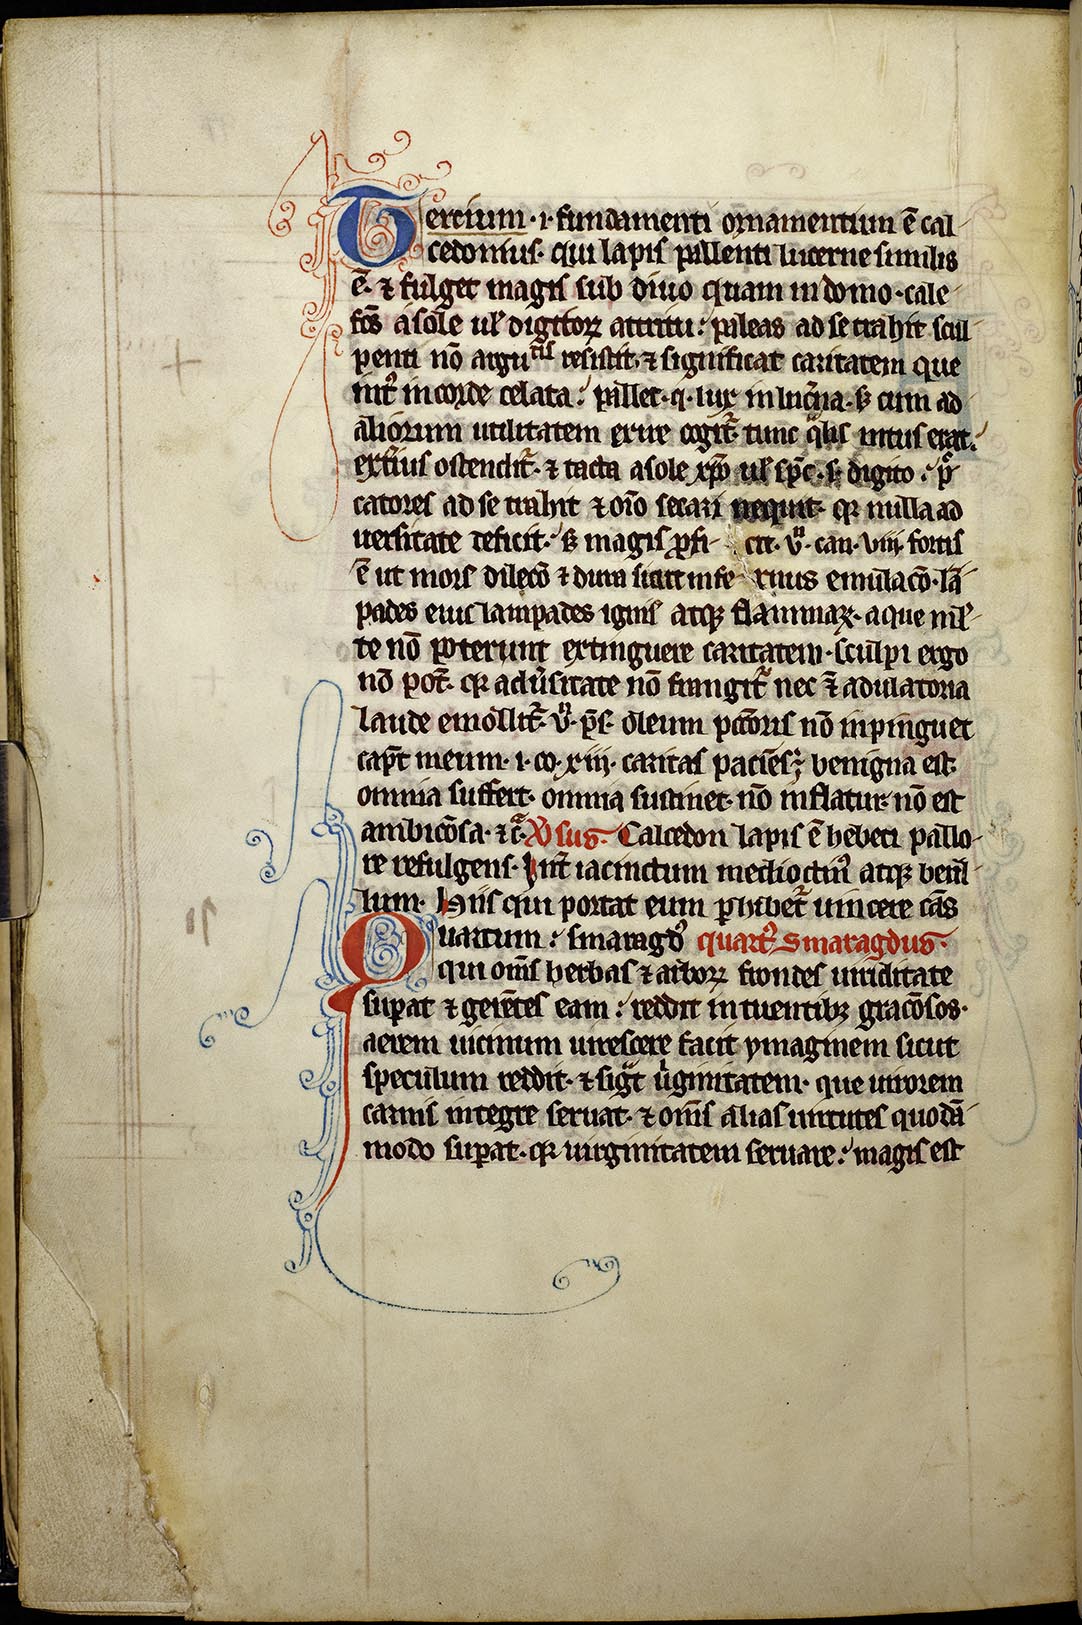 Tercium · i · fundamenti ornamentium ē cal-
cedonius · qui lapis pallenti lucerne similis
ē · ⁊ fulget magis sub diuo quam in domo · cale-
fcūs a sole ul' digitorꝝ attritu : paleas ad se trahit scul-
penti nō arguᵗⁱˢ resistit · ⁊ significat caritatem que
int̄ in corde celata : pallet · q · lux in lucn̄a · sꝫ cum ad
aliorum utilitatem exire cogit̄ · tunc q̄lis intus erat :
exterius ostendit̄ · ⁊ tacta a sole xp̄o ul' sp̄c · s · digito : p̄-
catores ad se trahit ⁊ oīo secari nequit · qꝛ nulla ad
uersitate deficit · sꝫ magis ꝓfi cit · v̄ · can · viii · fortis
ē ut mors dilecō ⁊ dura sicut infe rnus emulacō · lā-
pades eius lampades ignis atqꝫ flammaꝝ · aque ml'-
te nō poterunt extinguere caritatem · sculpi ergo
nō pot̄ · qꝛ adūsitate nō frangit̄ nec ī adulatoria
laude emollit̄ · v̄ · ps̄ · oleum pcc̄oris nō inpinguet
capt̄ meum · i · co · xiii · caritas paciēs ; benigna est
omnia suffert · omnia sustinet · nō inflatur · nō est
ambicōsa · ⁊c̄ · V̄sus · Calcedon lapis ē hebeti pallo-
re refulgens · Int̄ iacinctum mediocrim̄ atqꝫ beril-
lum · Hiis qui portat eum ꝑhibet̄ uincere cās
Quartum : smaragd' quart' Smaragdus ·
qui om̄s herbas ⁊ arborꝝ frondes uiriditate
suꝑat ⁊ gerētes eam : reddit intuentibꝫ gracōsos ·
aerem uicinum uirescere facit ymaginem sicut
speculum reddit · ⁊ sigt̄ ūginitatem · que uirorem
carnis integre seruat · ⁊ om̄s alias uirtutes quodā-
modo suꝑat · qꝛ uirginitatem seruare : magis est